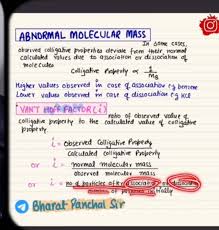 ABNORMAL MOLECULAR MASS
In some cases,
observed colligative properties deviate from their normal
calculated values due to association or dissociation of
molecules
Colligative Property ∝ 1/MB
Higher values observed in case of association eg benzene
Lower values observed in case of dissociation eg KCl
VAN'T HOFF FACTOR (i)
ratio of observed value of
colligative property to the calculated value of colligative
property
i = Observed Colligative Property
Calculated Colligative Property
or i = normal molecular mass
observed molecular mass
or i = no of particles after association or
Bharat Panchal Sir